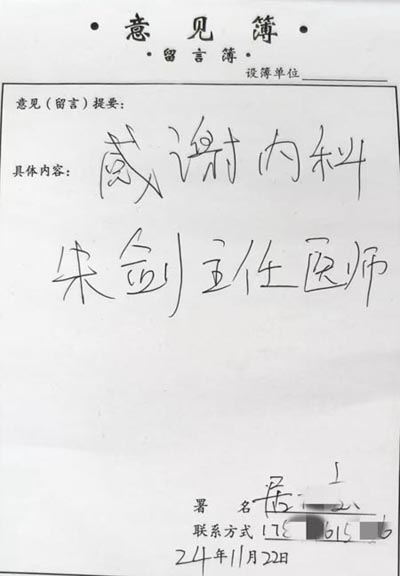 · 意见簿 ·
· 留言簿 ·
设簿单位
意见（留言）提要：
具体内容： 感谢内科
朱剑主任医师
署 名
联系方式 17 615 6
24年11月22日